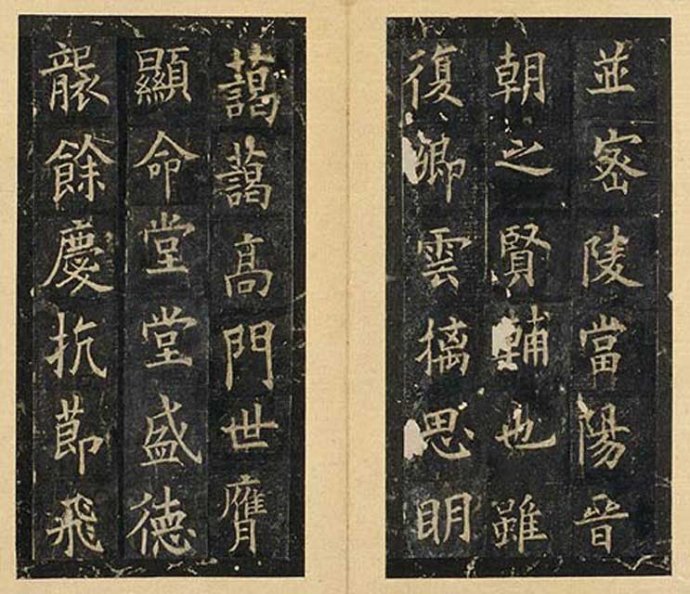 並密陵當陽晉
朝之賢輔也雖
復卿雲摛思眀
藹藹高門世膺
顯命堂堂盛徳
襲餘慶抗莭飛